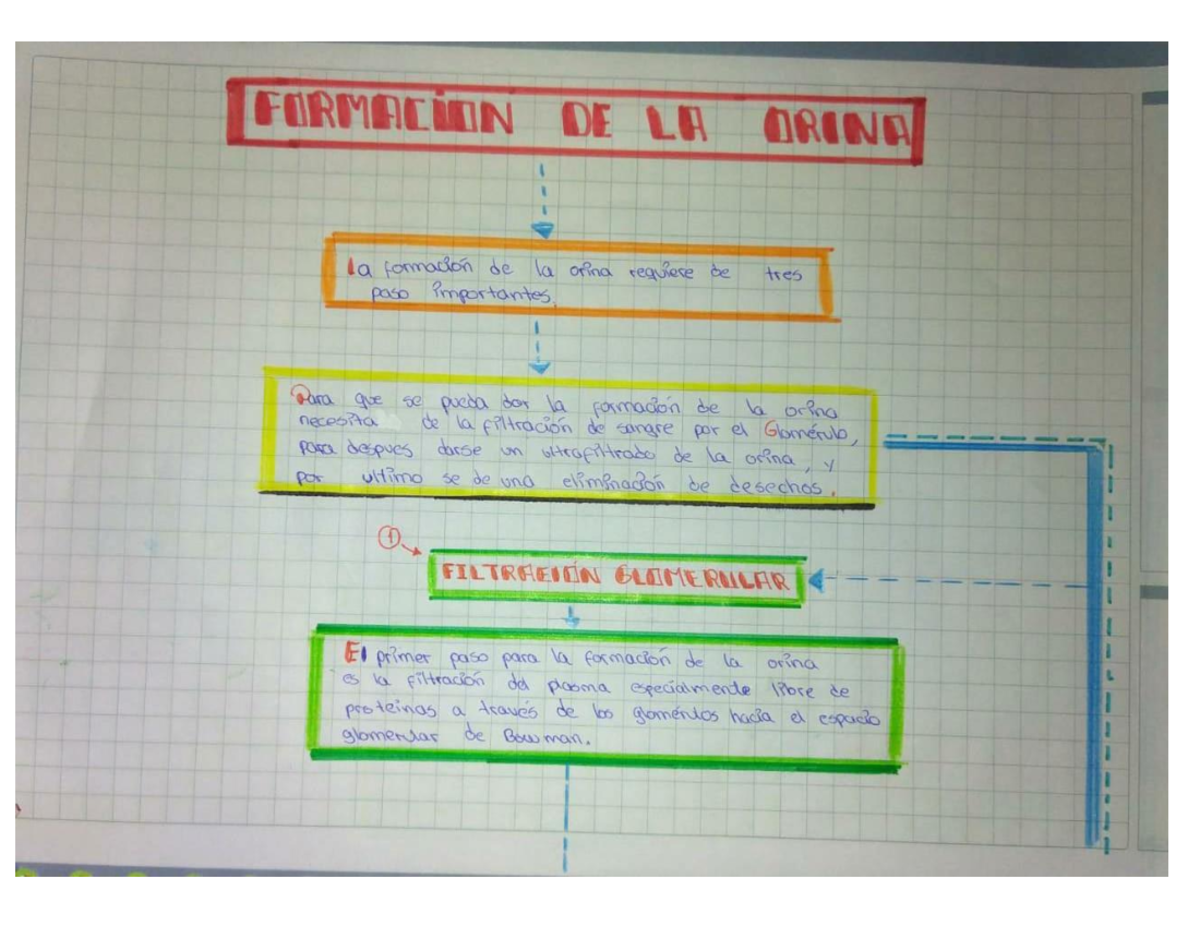 FORMACIÓN DE LA ORINA
La formación de la orina requiere de tres
paso importantes.
Para que se pueda dar la formación de la orina
necesita de la filtración de sangre por el Glomérulo,
para despues darse un ultrafiltrado de la orina, y
por ultimo se de una eliminación de desechos.
1
FILTRACIÓN GLOMERULAR
El primer paso para la formación de la orina
es la filtración del plasma especialmente libre de
proteinas a través de los glomérulos hacia el espacio
glomerular de Bowman.